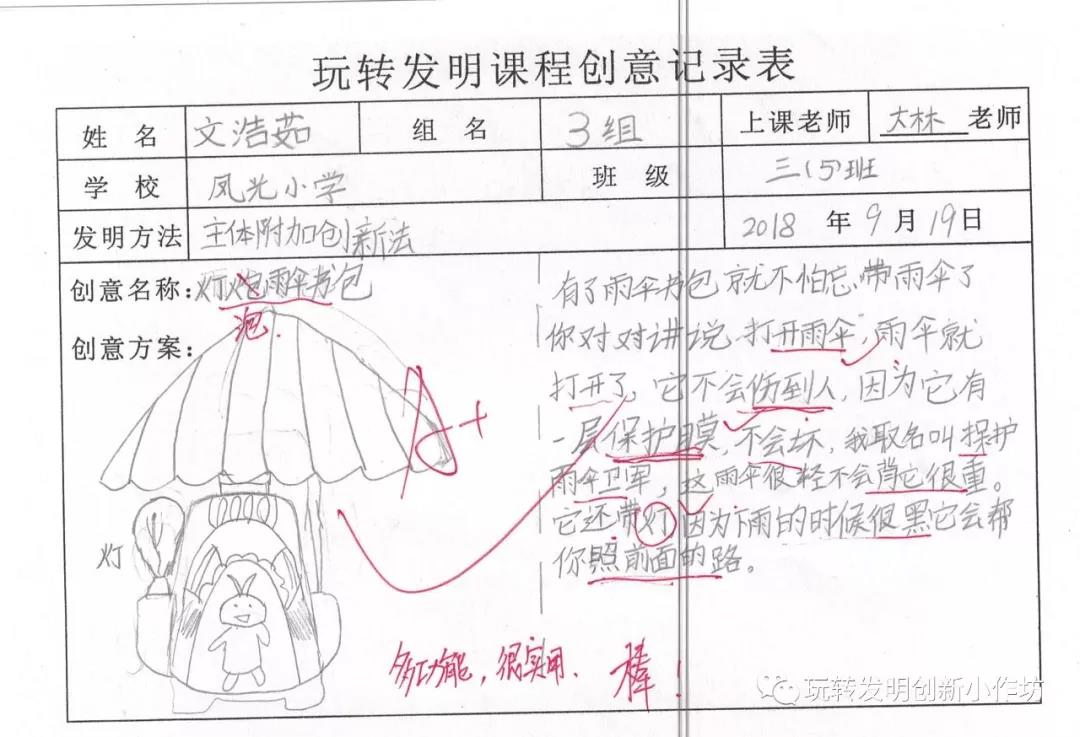 玩转发明课程创意记录表
姓 名 文浩茹 组 名 3组 上课老师 大林 老师
学 校 凤光小学 班 级 三(5)班
发明方法 主体附加创新法 2018 年 9 月 19 日
创意名称:灯炮雨伞书包
泡.
创意方案:
灯
有了雨伞书包就不怕忘带雨伞了
你对对讲说打开雨伞,雨伞就
打开了,它不会伤到人,因为它有
一层保护膜,不会坏,我取名叫保护
雨伞卫军,这雨伞很轻不会背它很重。
它还带灯因为下雨的时候很黑它会帮
你照前面的路。
A+
多功能,很实用.棒!
玩转发明创新小作坊